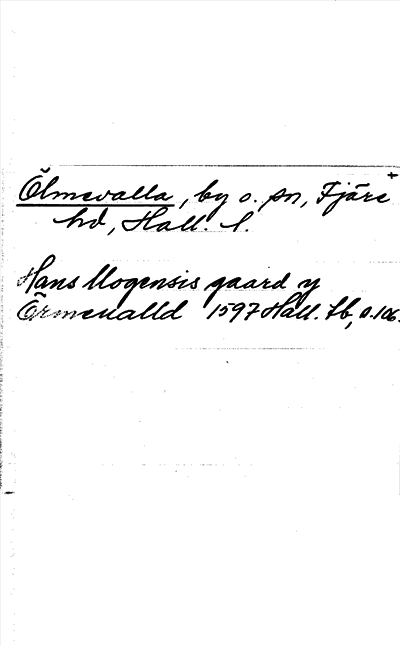 Ölmevalla, by o. sn, Fjäre
hd, Hall. l.
Hans Mogensis gaard y
Örmeualld 1597 Hall. tb, s. 106.